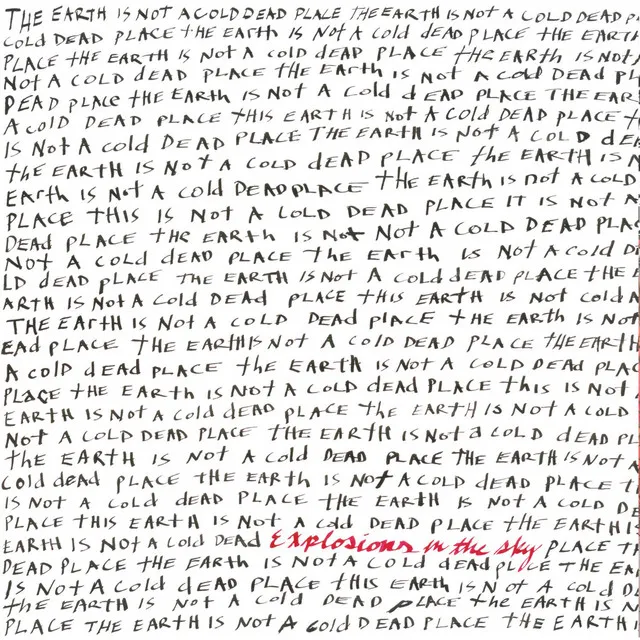 THE EARTH IS NOT A COLD DEAD PLACE THE EARTH IS NOT A COLD DEAD P
COLD DEAD PLACE THE EARTH IS NOT A COLD DEAD PLACE THE EARTH
PLACE THE EARTH IS NOT A COLD DEAD PLACE THE EARTH IS NOT
NOT A COLD DEAD PLACE THE EARTH IS NOT A COLD DEAD PL
DEAD PLACE THE EARTH IS NOT A COLD DEAD PLACE THE EAR
A COLD DEAD PLACE THIS EARTH IS NOT A COLD DEAD PLACE T
IS NOT A COLD DEAD PLACE THE EARTH IS NOT A COLD DEA
THE EARTH IS NOT A COLD DEAD PLACE THE EARTH IS N
EARTH IS NOT A COLD DEAD PLACE THE EARTH IS NOT A COLD
PLACE THIS IS NOT A COLD DEAD PLACE IT IS NOT A
DEAD PLACE THE EARTH IS NOT NOT A COLD DEAD PLAC
NOT A COLD DEAD PLACE THE EARTH IS NOT A COLD D
LD DEAD PLACE THE EARTH IS NOT A COLD DEAD PLACE THE
ARTH IS NOT A COLD DEAD PLACE THIS EARTH IS NOT COLD A
THE EARTH IS NOT A COLD DEAD PLACE THE EARTH IS NOT
EAD PLACE THE EARTH IS NOT A COLD DEAD PLACE THE EARTH
A COLD DEAD PLACE THE EARTH IS NOT A COLD DEAD PLAC
PLACE THE EARTH IS NOT A COLD DEAD PLACE THIS IS NOT
EARTH IS NOT A COLD DEAD PLACE THE EARTH IS NOT A COLD
NOT A COLD DEAD PLACE THE EARTH IS NOT A COLD DEAD PL
THE EARTH IS NOT A COLD DEAD PLACE THE EARTH IS NOT A
COLD DEAD PLACE THE EARTH IS NOT A COLD DEAD PLACE T
IS NOT A COLD DEAD PLACE THE EARTH IS NOT A COLD DE
PLACE THIS EARTH IS NOT A COLD DEAD PLACE THE EARTH IS
EARTH IS NOT A COLD DEAD Explosions in the sky PLACE TH
DEAD PLACE THE EARTH IS NOT A COLD DEAD PLACE THE EA
IS NOT A COLD DEAD PLACE THIS EARTH IS NOT A COLD D
THE EARTH IS NOT A COLD DEAD PLACE THE EARTH IS N
PLACE THE EARTH IS NOT A COLD DEAD PLACE THE EARTH I